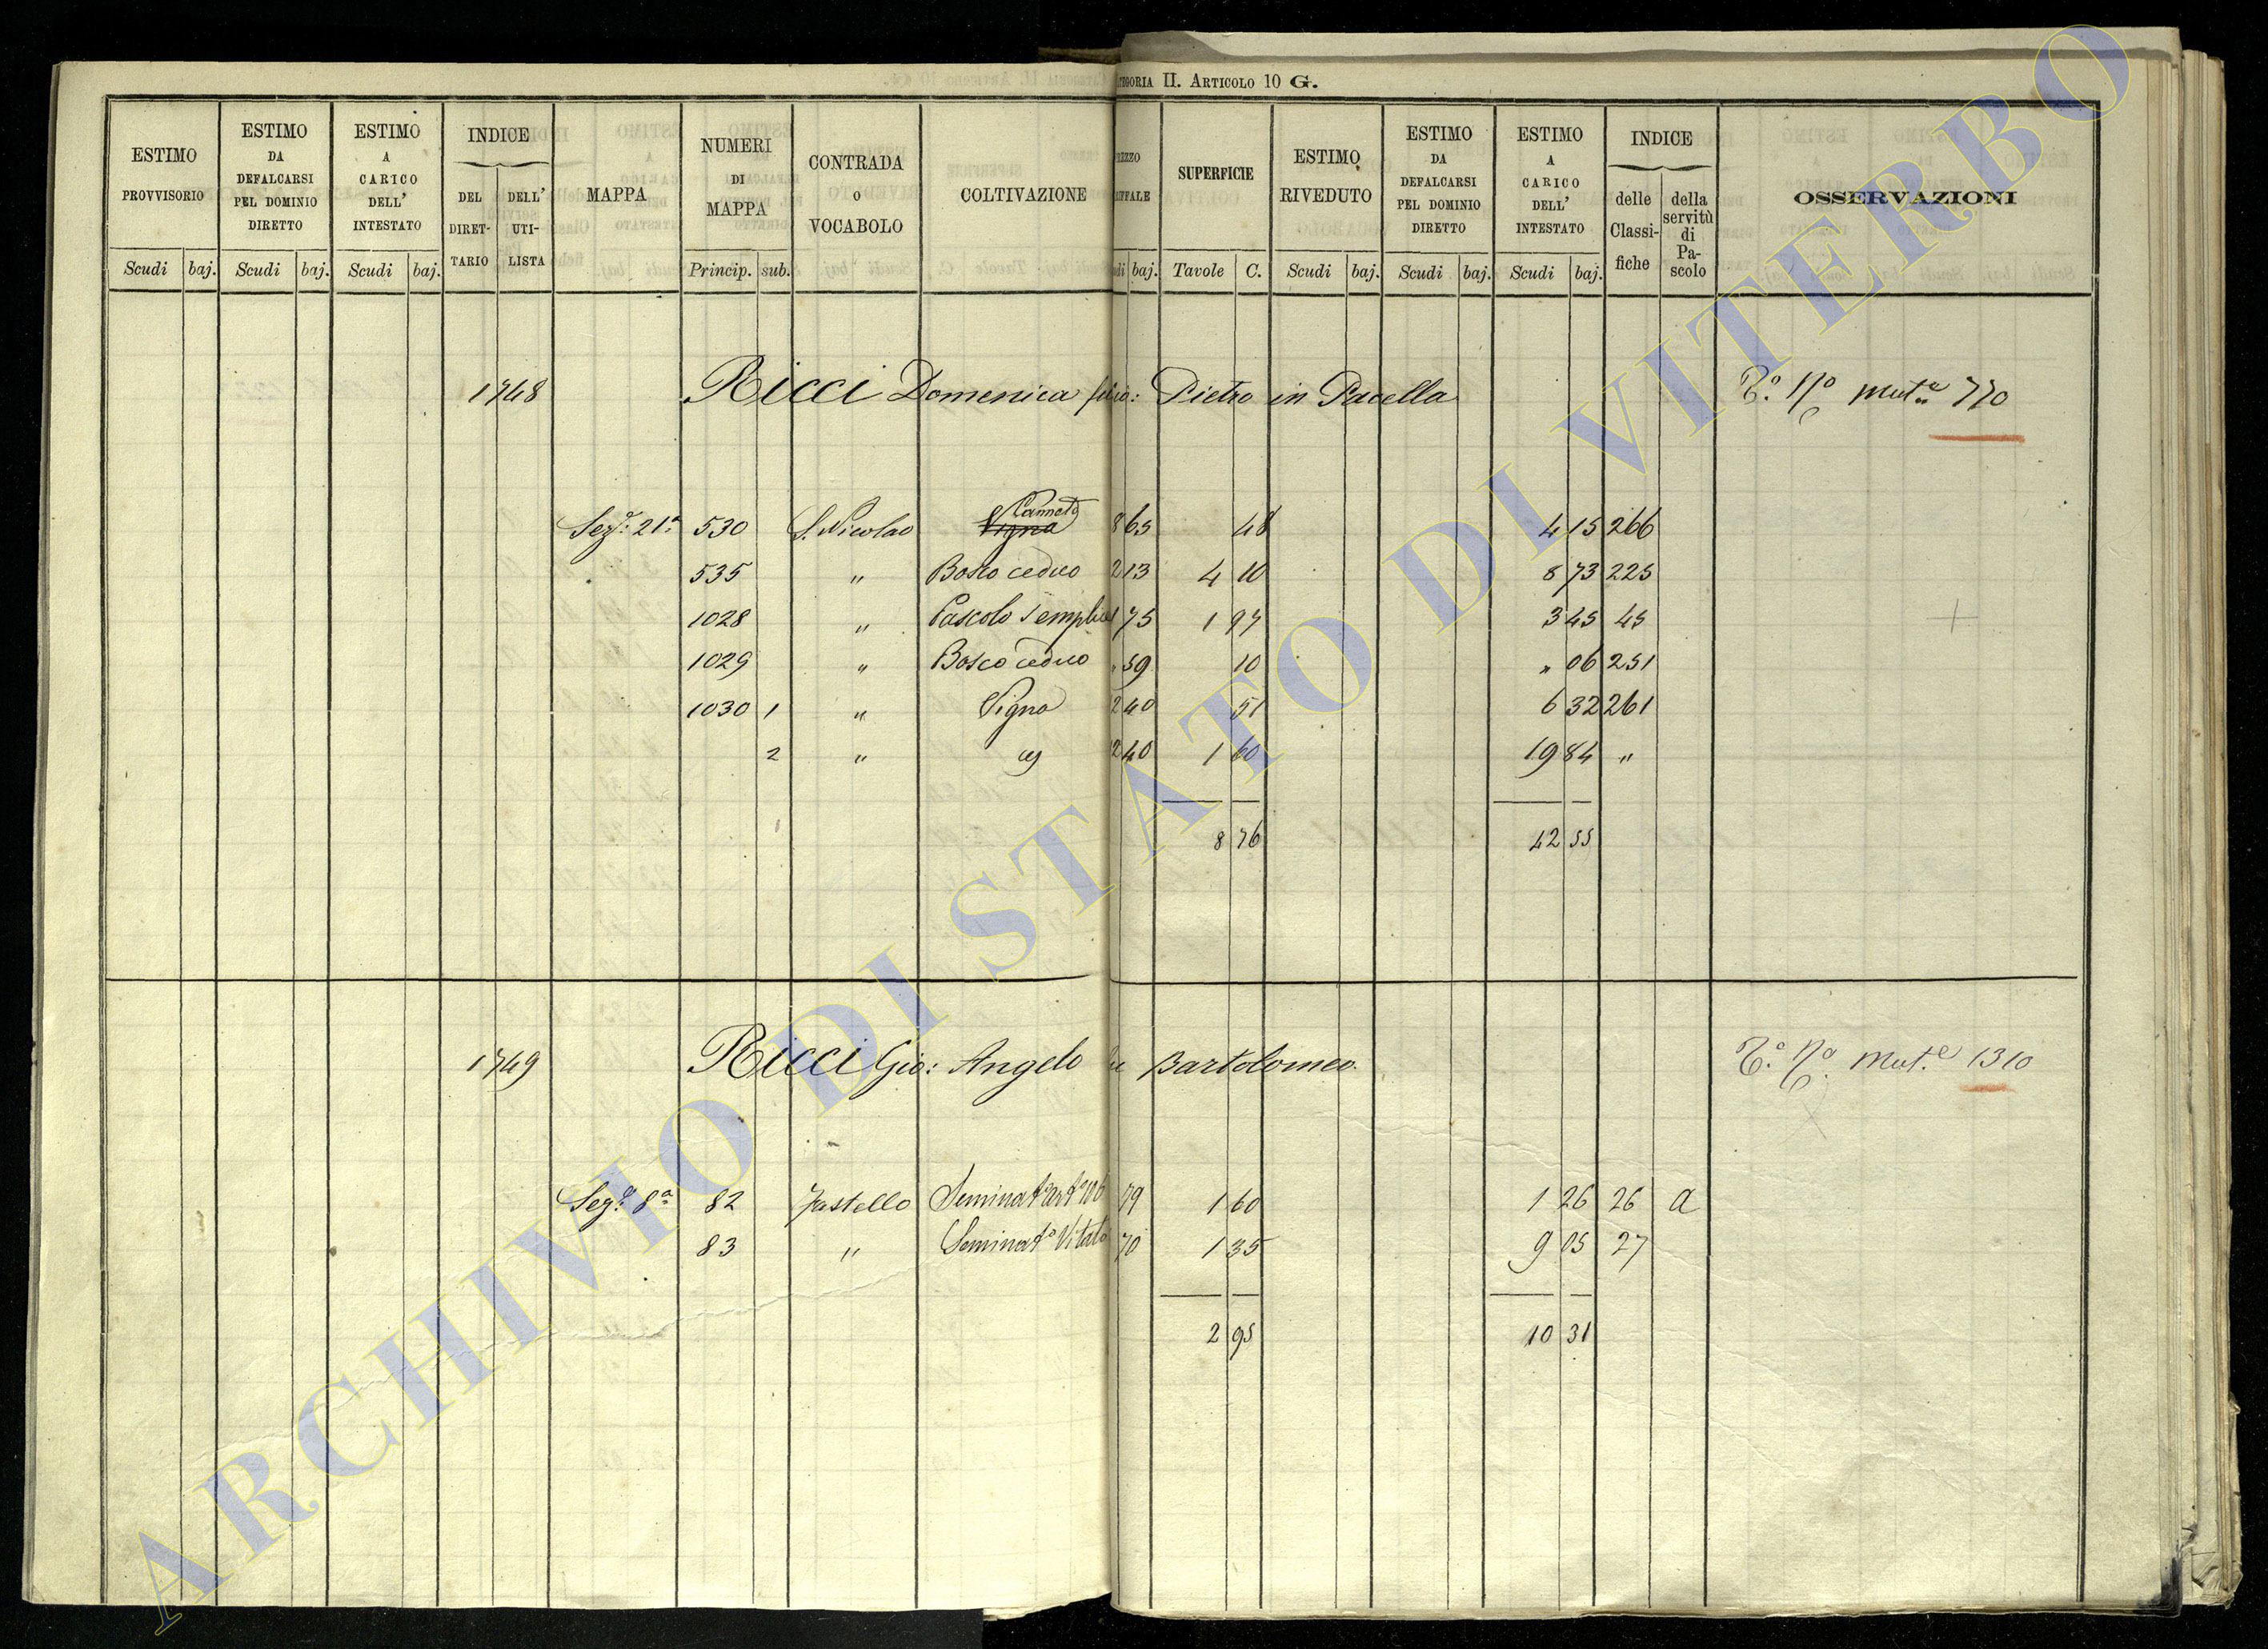 TEGORIA II. ARTICOLO 10 G.
ESTIMO PROVVISORIO
ESTIMO DA DEFALCARSI PEL DOMINIO DIRETTO
ESTIMO A CARICO DELL' INTESTATO
INDICE
DEL DIRET-TARIO
DELL' UTI-LISTA
MAPPA
NUMERI DI MAPPA
CONTRADA O VOCABOLO
COLTIVAZIONE
EZZO IFFALE
SUPERFICIE
ESTIMO RIVEDUTO
ESTIMO DA DEFALCARSI PEL DOMINIO DIRETTO
ESTIMO A CARICO DELL' INTESTATO
INDICE
delle Classi-fiche
della servitù di Pa-scolo
OSSERVAZIONI
Scudi baj. Scudi baj. Scudi baj. Princip. sub. di baj. Tavole C. Scudi baj. Scudi baj. Scudi baj.
1748 Ricci Domenica Pietro in Pacella 770
Sez.e 21a 530 S. Nicolao Vigna Canneto 8 65 48 4 15 266
535 " Bosco ceduo 2 13 4 10 8 73 225
1028 " Pascolo semplice 1 75 1 97 3 45 45
1029 " Bosco ceduo " 59 10 " 06 251
1030 1 " Vigna 12 40 51 6 32 261
2 " 12 40 1 60 19 84 "
8 76 42 55
1749 Ricci Gio: Angelo Bartolomeo 1310
Sez.e 8a 82 Jastello 79 1 60 1 26 26 a
83 " Seminat.o Vitato 70 1 35 9 05 27
2 95 10 31
ARCHIVIO DI STATO DI VITERBO